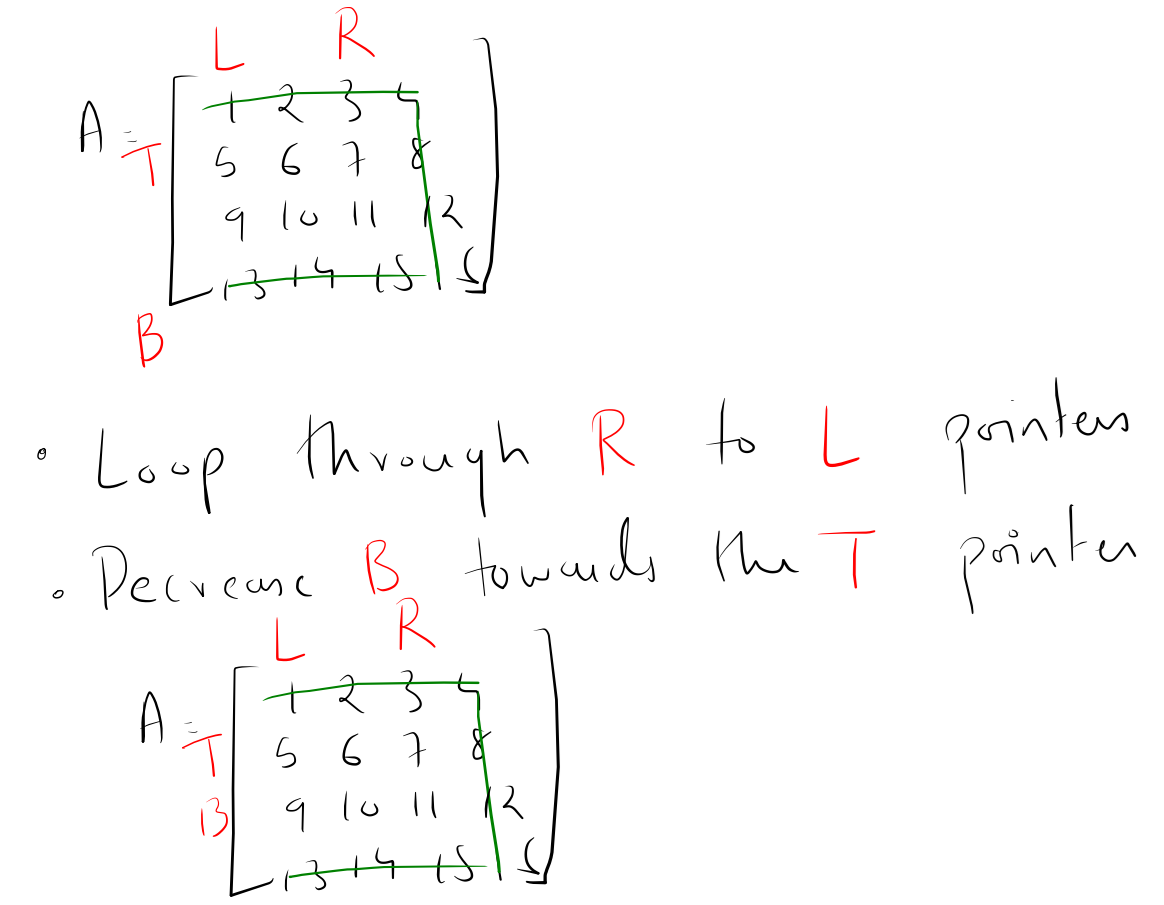 L R
A =
T
1 2 3 4
5 6 7 8
9 10 11 12
13 14 15
B
• Loop through R to L pointers
• Decrease B towards the T pointer
L R
A =
T
B
1 2 3 4
5 6 7 8
9 10 11 12
13 14 15